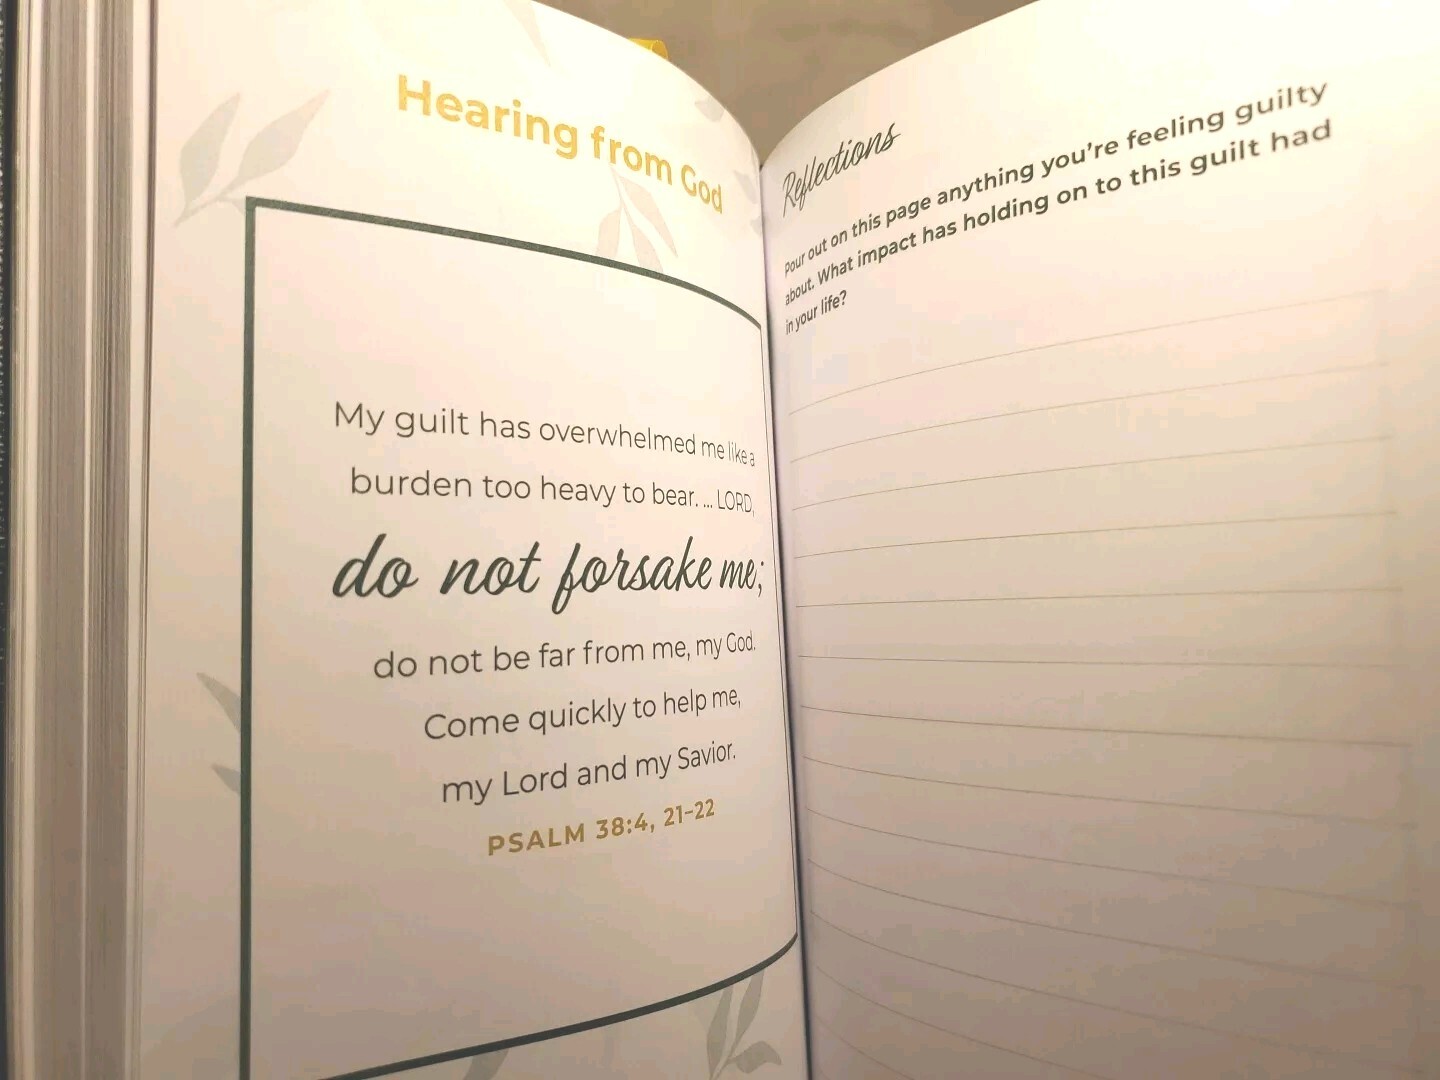 Hearing from God
My guilt has overwhelmed me like a
burden too heavy to bear. ... LORD,
do not forsake me;
do not be far from me, my God.
Come quickly to help me,
my Lord and my Savior.
PSALM 38:4, 21-22
Reflections
Pour out on this page anything you're feeling guilty
about. What impact has holding on to this guilt had
in your life?